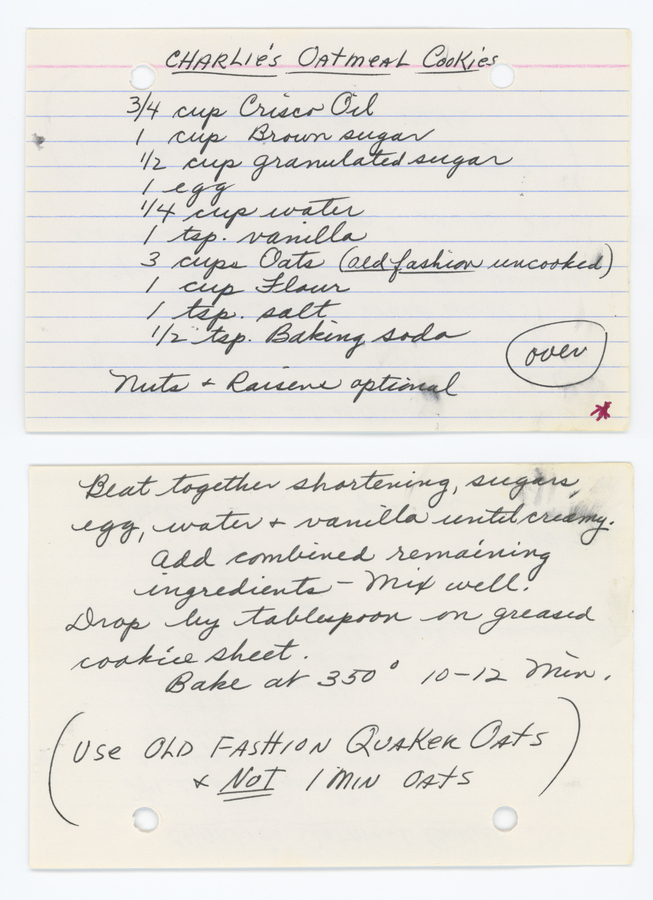 CHARLIE'S OATMEAL COOKIES
3/4 cup Crisco Oil
1 cup Brown sugar
1/2 cup granulated sugar
1 egg
1/4 cup water
1 tsp. vanilla
3 cups Oats (old fashion uncooked)
1 cup Flour
1 tsp. salt
1/2 tsp. Baking soda
over
Nuts + Raisens optional
Beat together shortening, sugars,
egg, water + vanilla until creamy.
Add combined remaining
ingredients - Mix well.
Drop by tablespoon on greased
cookie sheet.
Bake at 350° 10-12 Min.
(USE OLD FASHION QUAKER OATS
+ NOT 1 MIN OATS)